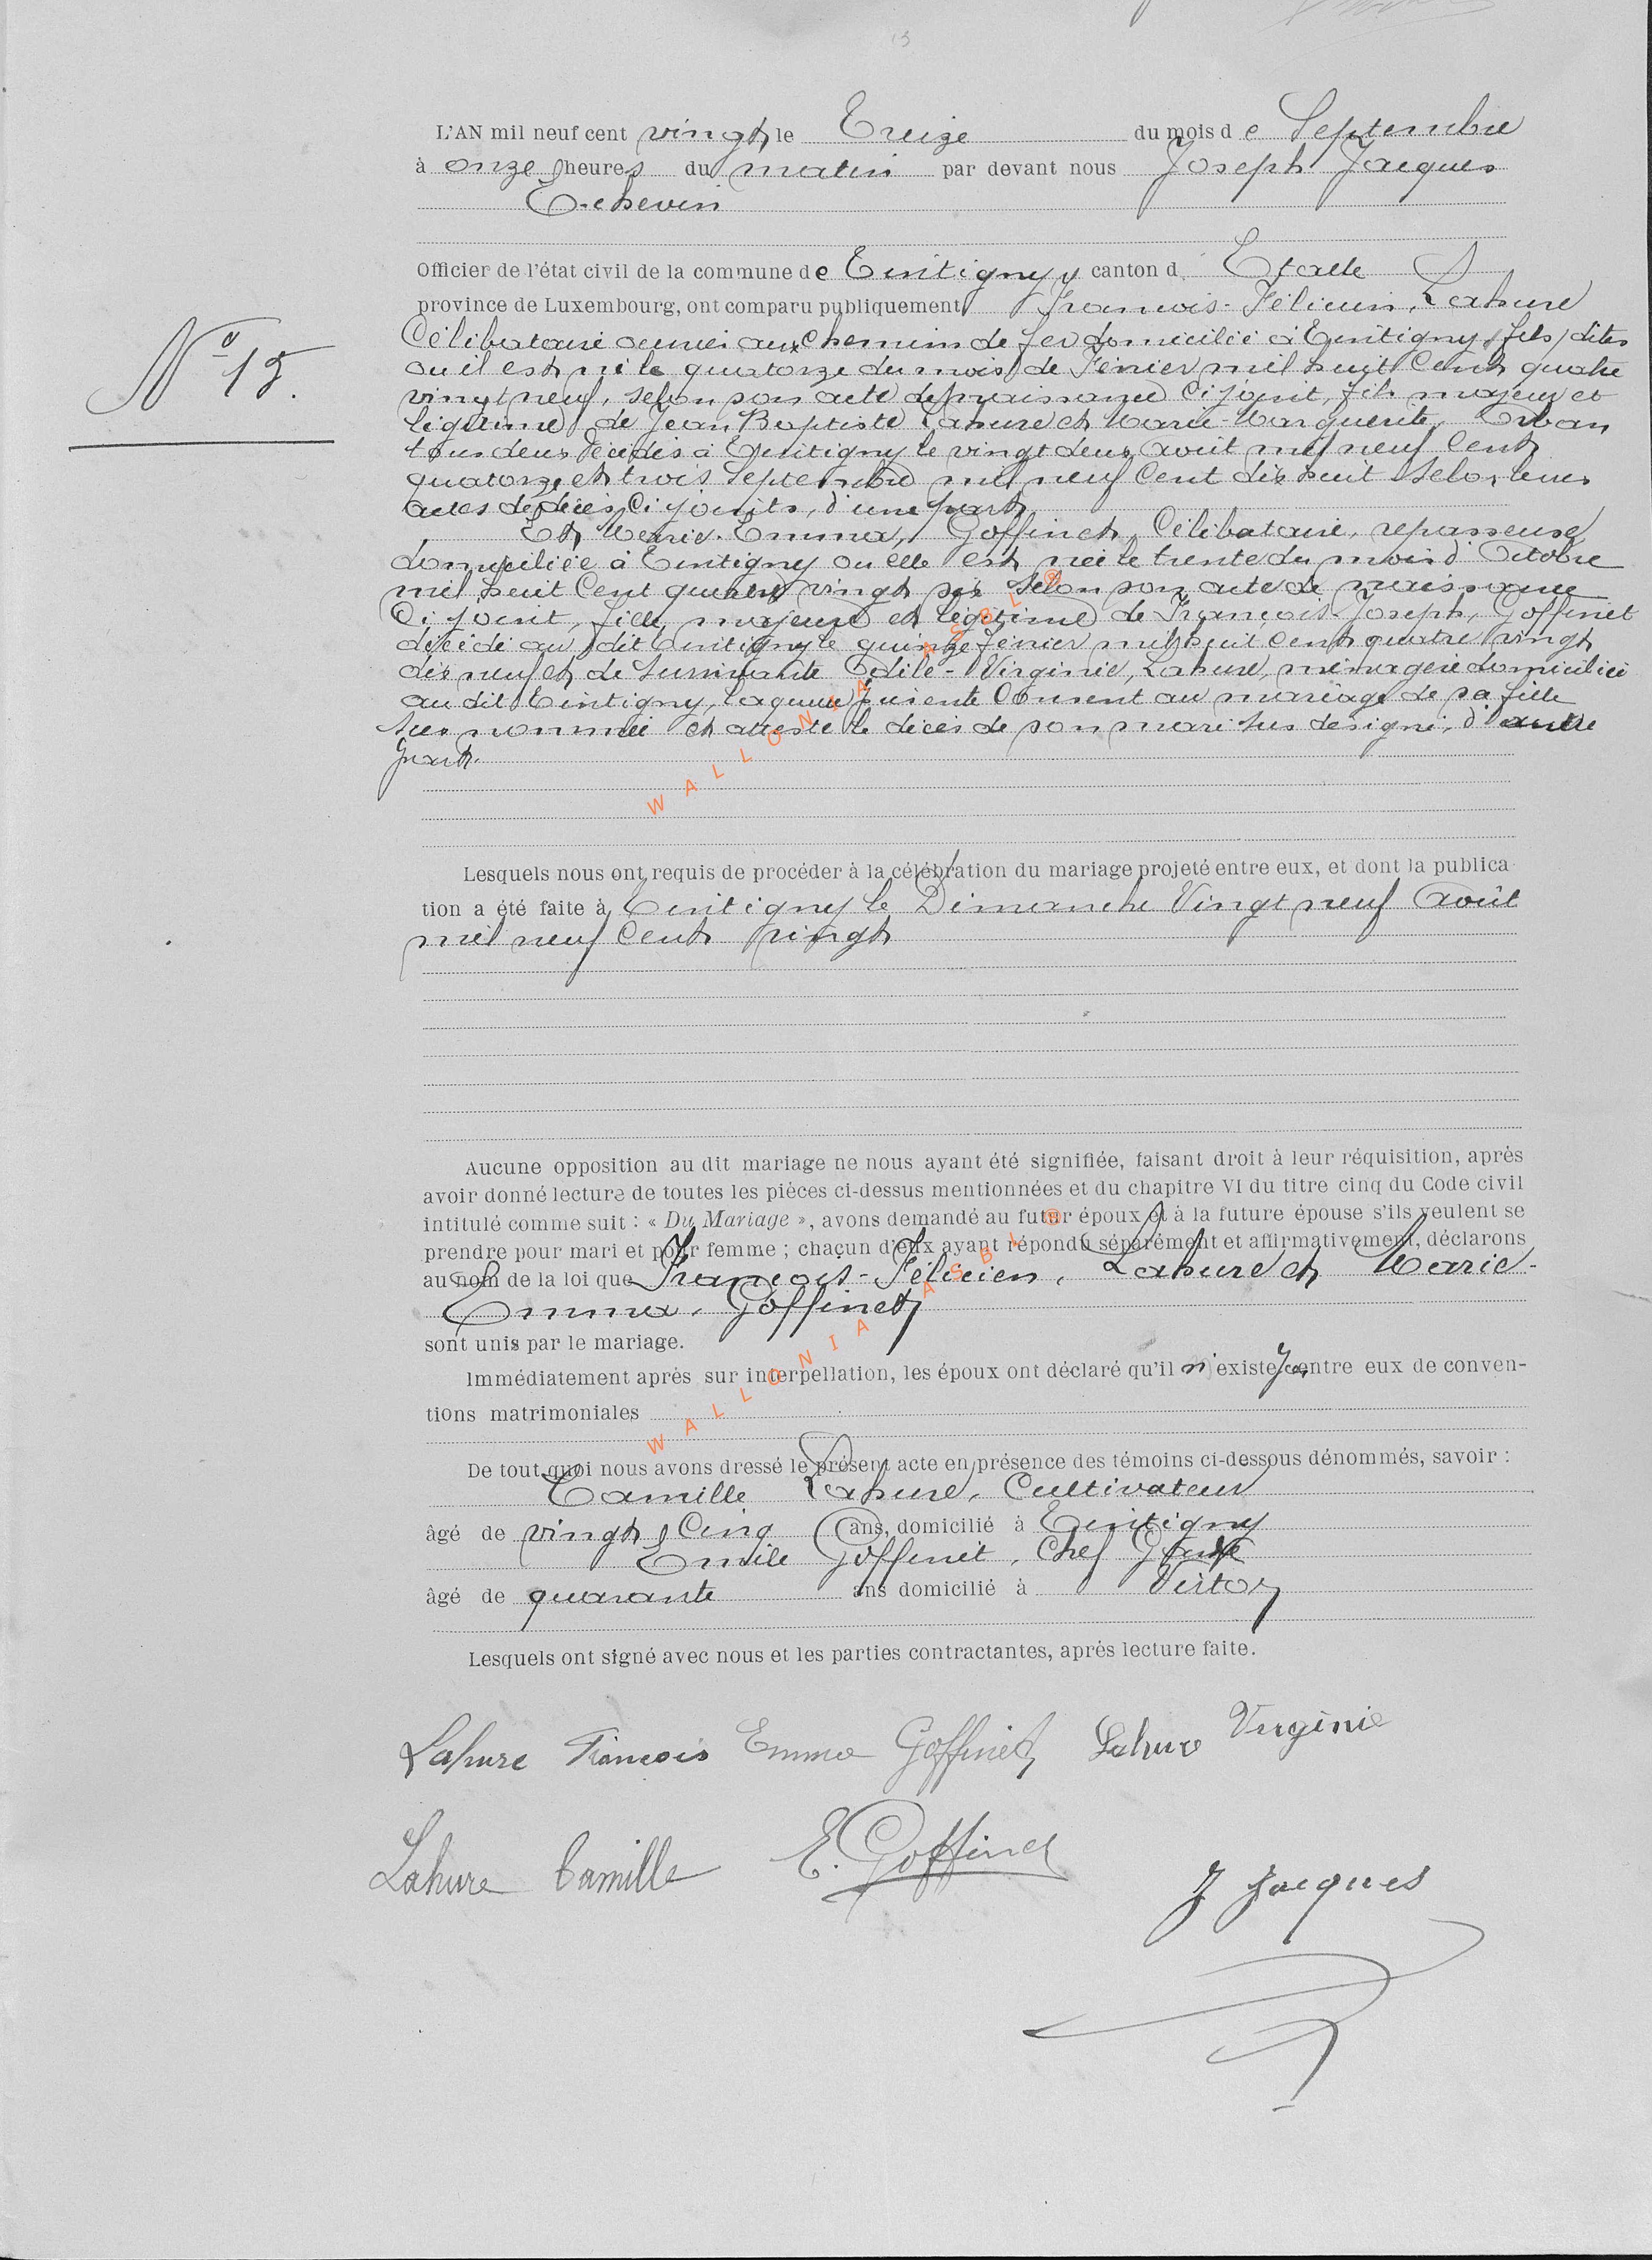 L'AN mil neuf cent vingt le Treize du mois de Septembre
à onze heures du matin par devant nous Joseph Jacques
Echevin
Officier de l'état civil de la commune de Tintigny, canton d Etalle
province de Luxembourg, ont comparu publiquement François-Félicien, Lahure
N° 15.
Célibataire ouvrier aux chemin de fer domicilié à Tintigny
ou il est né le quatorze du mois de Février mil huit Cent quatre
vingt neuf, selon son acte de naissance Ci joint, fils majeur et
légitime de Jean Baptiste Lahure et Marie-Marguerite, Orban
tous deux décédés à Tintigny le vingt deux Août mil neuf Cent
quatorze et trois Septembre mil neuf Cent dix huit selon leurs
actes de décès Ci joints, d'une part
Et Marie-Emma, Goffinet, Célibataire, repasseuse
domiciliée à Tintigny ou elle est née le trente du mois d'Octobre
mil huit Cent quatre vingt six selon son acte de naissance
Ci joint, fille majeure et légitime de François-Joseph, Goffinet
décédé au dit Tintigny le quinze Février mil huit cent quatre vingt
dix neuf et de survivante Odile-Virginie, Lahure, ménagère domiciliée
au dit Tintigny, laquelle présente Consent au mariage de sa fille
sus nommée et atteste le décès de son mari sus désigné, d'autre
part.
Lesquels nous ont requis de procéder à la célébration du mariage projeté entre eux, et dont la publica
tion a été faite à Tintigny le Dimanche Vingt neuf Août
mil neuf Cent vingt
Aucune opposition au dit mariage ne nous ayant été signifiée, faisant droit à leur réquisition, après
avoir donné lecture de toutes les pièces ci-dessus mentionnées et du chapitre VI du titre cinq du Code civil
intitulé comme suit : « Du Mariage », avons demandé au futur époux et à la future épouse s'ils veulent se
prendre pour mari et pour femme ; chacun d'eux ayant répondu séparément et affirmativement, déclarons
au nom de la loi que François-Félicien, Lahure et Marie-
Emma, Goffinet
sont unis par le mariage.
Immédiatement après sur interpellation, les époux ont déclaré qu'il n'existe pas entre eux de conven-
tions matrimoniales
De tout quoi nous avons dressé le présent acte en présence des témoins ci-dessous dénommés, savoir :
Camille Lahure, Cultivateur
âgé de vingt Cinq ans, domicilié à Tintigny
Emile Goffinet, Chef Garde
âgé de quarante ans domicilié à Virton
Lesquels ont signé avec nous et les parties contractantes, après lecture faite.
Lahure François Emma Goffinet Lahure Virginie
Lahure Camille E. Goffinet
J Jacques
WALLONIA ASBL ®
WALLONIA ASBL ®